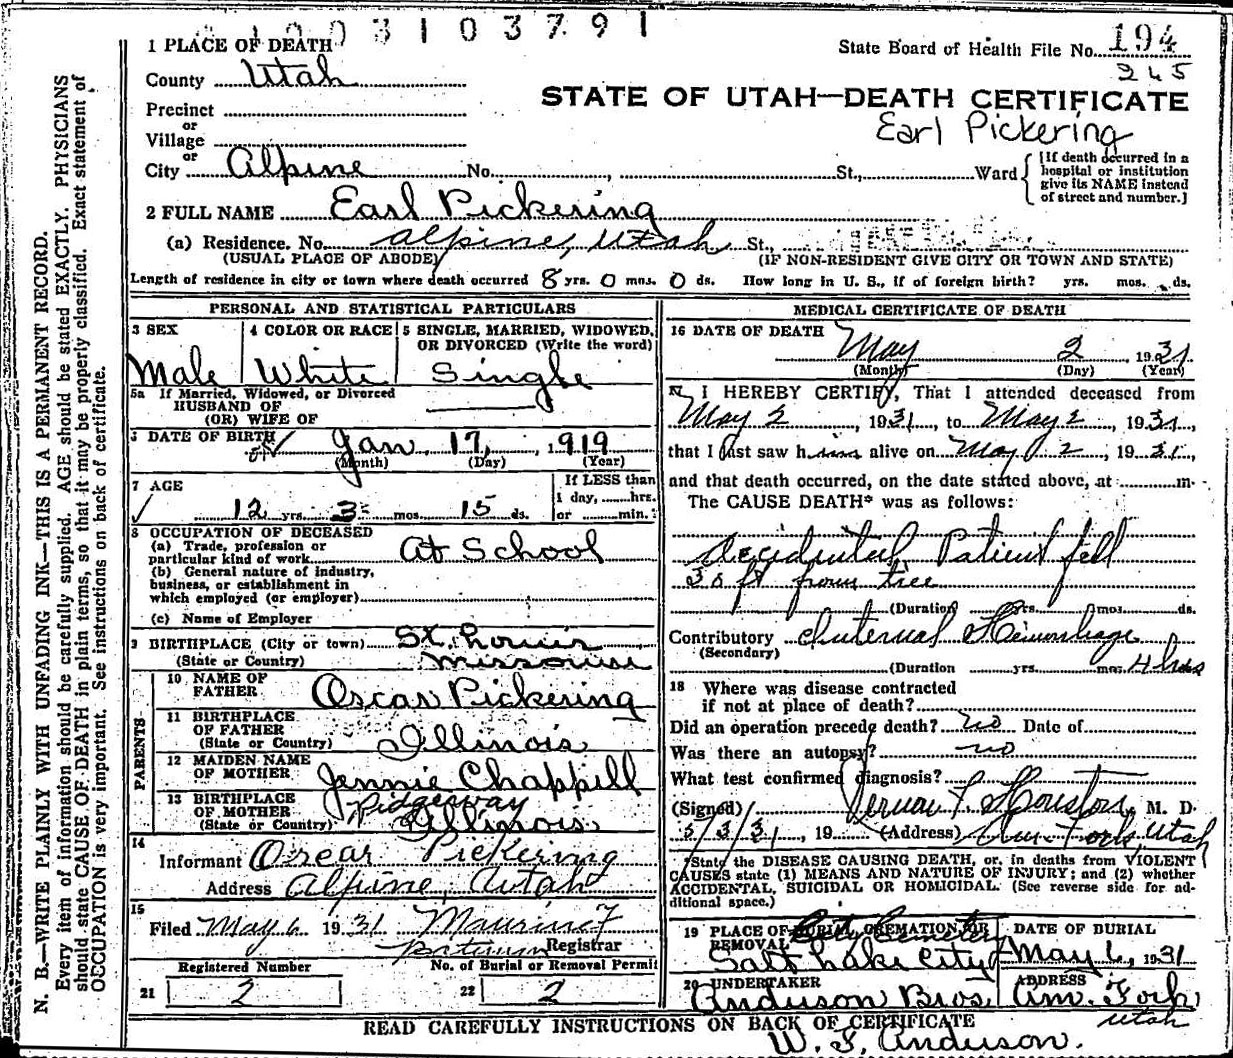 1003103791
1 PLACE OF DEATH
State Board of Health File No. 194
245
County Utah
STATE OF UTAH—DEATH CERTIFICATE
Precinct
or
Earl Pickering
Village
or
City Alpine No. , St., Ward
[If death occurred in a
hospital or institution
give its NAME instead
of street and number.]
2 FULL NAME Earl Pickering
(a) Residence. No. Alpine, Utah St.,
(USUAL PLACE OF ABODE) (IF NON-RESIDENT GIVE CITY OR TOWN AND STATE)
Length of residence in city or town where death occurred 8 yrs. 0 mos. 0 ds. How long in U. S., if of foreign birth? yrs. mos. ds.
PERSONAL AND STATISTICAL PARTICULARS
3 SEX
Male
4 COLOR OR RACE
White
5 SINGLE, MARRIED, WIDOWED,
OR DIVORCED (Write the word)
Single
5a If Married, Widowed, or Divorced
HUSBAND OF
(OR) WIFE OF
6 DATE OF BIRTH Jan. 17, 1919
(Month) (Day) (Year)
7 AGE
12 yrs. 3 mos. 15 ds.
If LESS than
1 day, hrs.
or min.
8 OCCUPATION OF DECEASED
(a) Trade, profession or
particular kind of work At School
(b) General nature of industry,
business, or establishment in
which employed (or employer)
(c) Name of Employer
9 BIRTHPLACE (City or town) St. Louis
(State or Country) Missouri
PARENTS
10 NAME OF
FATHER Oscar Pickering
11 BIRTHPLACE
OF FATHER
(State or Country) Illinois
12 MAIDEN NAME
OF MOTHER Jennie Chappill
13 BIRTHPLACE
OF MOTHER Ridgeway
(State or Country) Illinois
14
Informant Oscar Pickering
Address Alpine, Utah
15
Filed May 6 1931
Registrar
Registered Number No. of Burial or Removal Permit
21 2 22 2
MEDICAL CERTIFICATE OF DEATH
16 DATE OF DEATH May 2, 1931
(Month) (Day) (Year)
17 I HEREBY CERTIFY, That I attended deceased from
May 2, 1931, to May 2, 1931,
that I last saw him alive on May 2, 1931,
and that death occurred, on the date stated above, at m.
The CAUSE DEATH* was as follows:
Accidental Patient fell
30 ft from tree
(Duration yrs. mos. ds.
Contributory Internal Hemorrhage
(Secondary)
(Duration yrs. mos. 4 hrs
18 Where was disease contracted
if not at place of death?
Did an operation precede death? no Date of
Was there an autopsy? no
What test confirmed diagnosis?
(Signed) Vernon F. Houston, M. D.
5/3/31, 19 (Address) Am. Fork, Utah
*State the DISEASE CAUSING DEATH, or, in deaths from VIOLENT
CAUSES state (1) MEANS AND NATURE OF INJURY; and (2) whether
ACCIDENTAL, SUICIDAL OR HOMICIDAL. (See reverse side for ad-
ditional space.)
19 PLACE OF BURIAL, CREMATION OR
REMOVAL City Cemetery
Salt Lake City
DATE OF BURIAL
May 6, 1931
20 UNDERTAKER
Anderson Bros.
ADDRESS
Am. Fork
Utah
READ CAREFULLY INSTRUCTIONS ON BACK OF CERTIFICATE
W. F. Anderson.
N. B.—WRITE PLAINLY WITH UNFADING INK—THIS IS A PERMANENT RECORD.
Every item of information should be carefully supplied. AGE should be stated EXACTLY. PHYSICIANS
should state CAUSE OF DEATH in plain terms, so that it may be properly classified. Exact statement of
OCCUPATION is very important. See instructions on back of certificate.